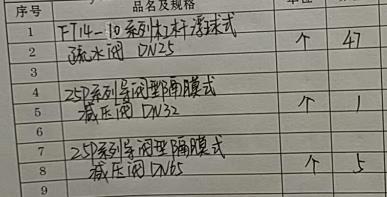 序号 品名及规格
1 FT14-10系列杠杆浮球式
2 疏水阀 DN25 个 47
3
4 25P系列导阀型隔膜式
5 减压阀 DN32 个 1
6
7 25P系列导阀型隔膜式
8 减压阀 DN65 个 5
9